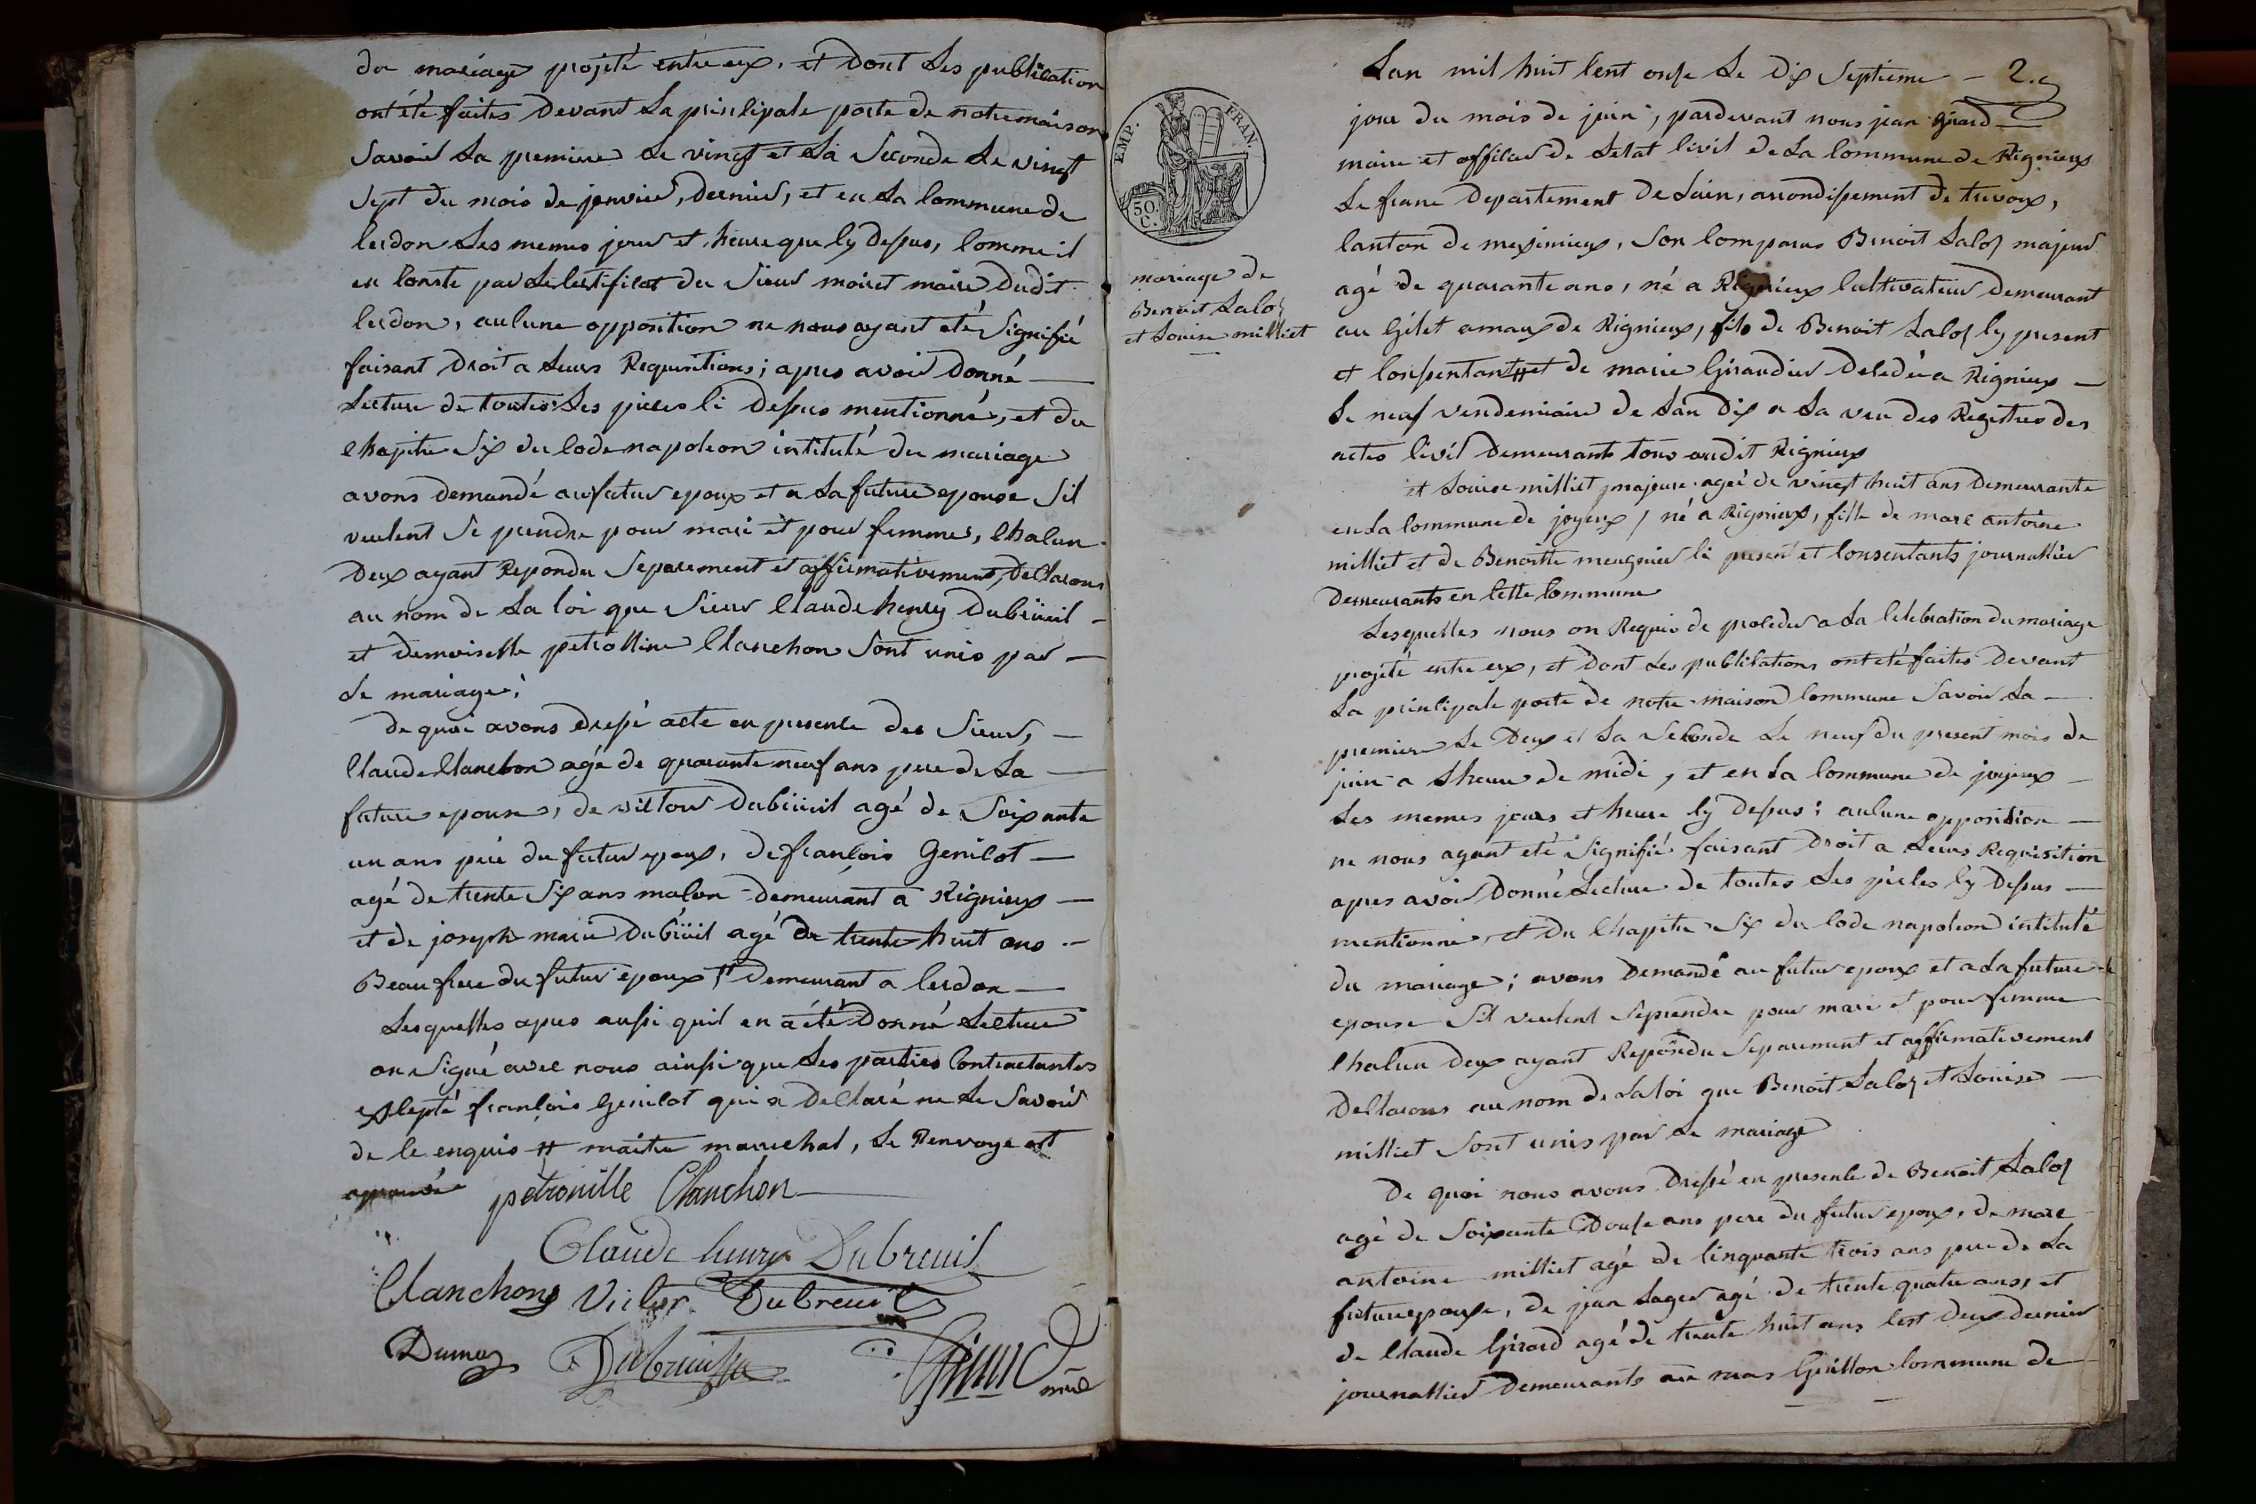 du mariage projeté entre eux, et dont les publication
ont été faites devant la principale porte de notre maison
savoir la premiere le vingt et la seconde le vingt
sept du mois de janvier, dernier, et en la commune de
cerdon les memes jour et heure que cy dessus, comme il
en conste par le certificat du sieur moiret maire dudit
cerdon, aucune opposition ne nous ayant été signifié
faisant droit a leurs Requisitions; apres avoir donné
lecture de toutes les pieces ci dessus mentionné, et du
chapitre six du code napoleon intitulé du mariage
avons demandé au futur epoux et a la future epouse sil
veulent se prendre pour mari et pour femme, chacun
deux ayant Repondu separement et affirmativement, declarons
au nom de la loi que sieur claude henry dubreüil
et demoiselle petrolline clanchon sont unis par
le mariage;
de quoi avons dressé acte en presence des sieurs,
claude clanchon agé de quarante neuf ans pere de la
future epouse, de victor dubreüil agé de soixante
un ans pere du futur epoux, de francois genilot
agé de trente six ans macon demeurant a Rignieux
et de joseph marie dubreüil agé de trente huit ans
Beau frere du futur epoux # demeurant a cerdon
lesquelles apres aussi quil en a été donné lecture
on signé avec nous ainssi que les parties contractantes
excepté francois genilot qui a declaré ne le savoir
de ce enquis # maitre marechal, le Renvoye est
approuvé petronille Clanchon
Claude henry Dubreuil
Clanchon Victor Dubreuil
Dumas Dubreuil
Girard mre
EMP. FRAN.
50. C.
mariage de
Benoit Laloz
et Louise milliet
Lan mil huit cent onze le dix septieme 2.e
jour du mois de juin, pardevant nous jean girard
maire et officier de letat civil de la commune de Rignieux
le franc departement de lain, arrondissement de trevoux,
canton de meximieux, son comparus Benoit Laloz majeur
agé de quarante ans, né a Rignieux cultivateur demeurant
au Gilet amaux de Rignieux, fils de Benoit Laloz cy present
et consentant # et de marie Giraudier decedé a Rignieux
le neuf vendemiaire de lan dix a la veu des Registres des
actes civil demeurants tous audit Rignieux
et Louise milliet majeure agée de vingt huit ans demeurante
en la commune de joyeux, né a Rignieux, fille de marc antoine
milliet et de Benoitte meugnier ci present et consentants journallier
demeurants en cette commune
Lesquelles nous on Requis de proceder a la celebration du mariage
projeté entre eux, et dont les publications ont été faites devant
la principale porte de notre maison commune savoir la
premiere le deux et la seconde le neuf du present mois de
juin a lheure de midi, et en la commune de joyeux
les memes jours et heure cy dessus; aucune opposition
ne nous ayant eté signifié faisant droit a leurs Requisition
apres avoir donné lecture de toutes les pieces cy dessus
mentionné, et du chapitre six du code napoleon intitulé
du mariage; avons demandé au futur epoux et a la future
epouse sil veulent se prendre pour mari et pour femme
chacun deux ayant Repondu separement et affirmativement
declarons au nom de la loi que Benoit Laloz et Louise
milliet sont unis par le mariage
De quoi nous avons dressé en presence de Benoit Laloz
agé de soixante Douse ans pere du futur epoux, de marc
antoine milliet agé de cinquante trois ans pere de la
future epouse, de jean Lager agé de trente quatre ans, et
de claude Girard agé de trente huit ans cest deux dernier
journallier demeurants au mas Guillon commune de